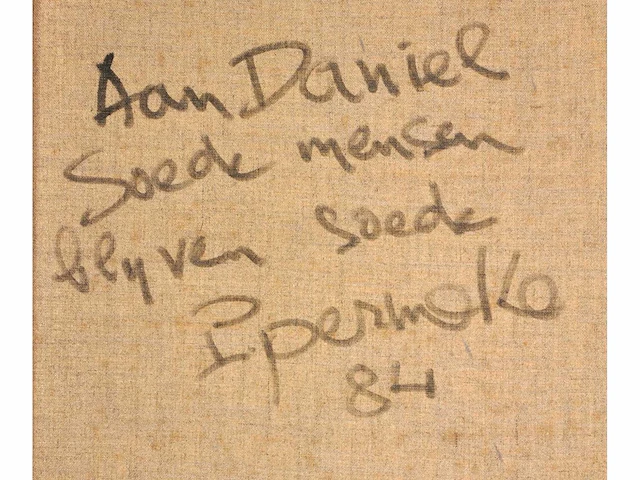 Aan Daniel
Soede mensen
blyven soede
I. permeke
84